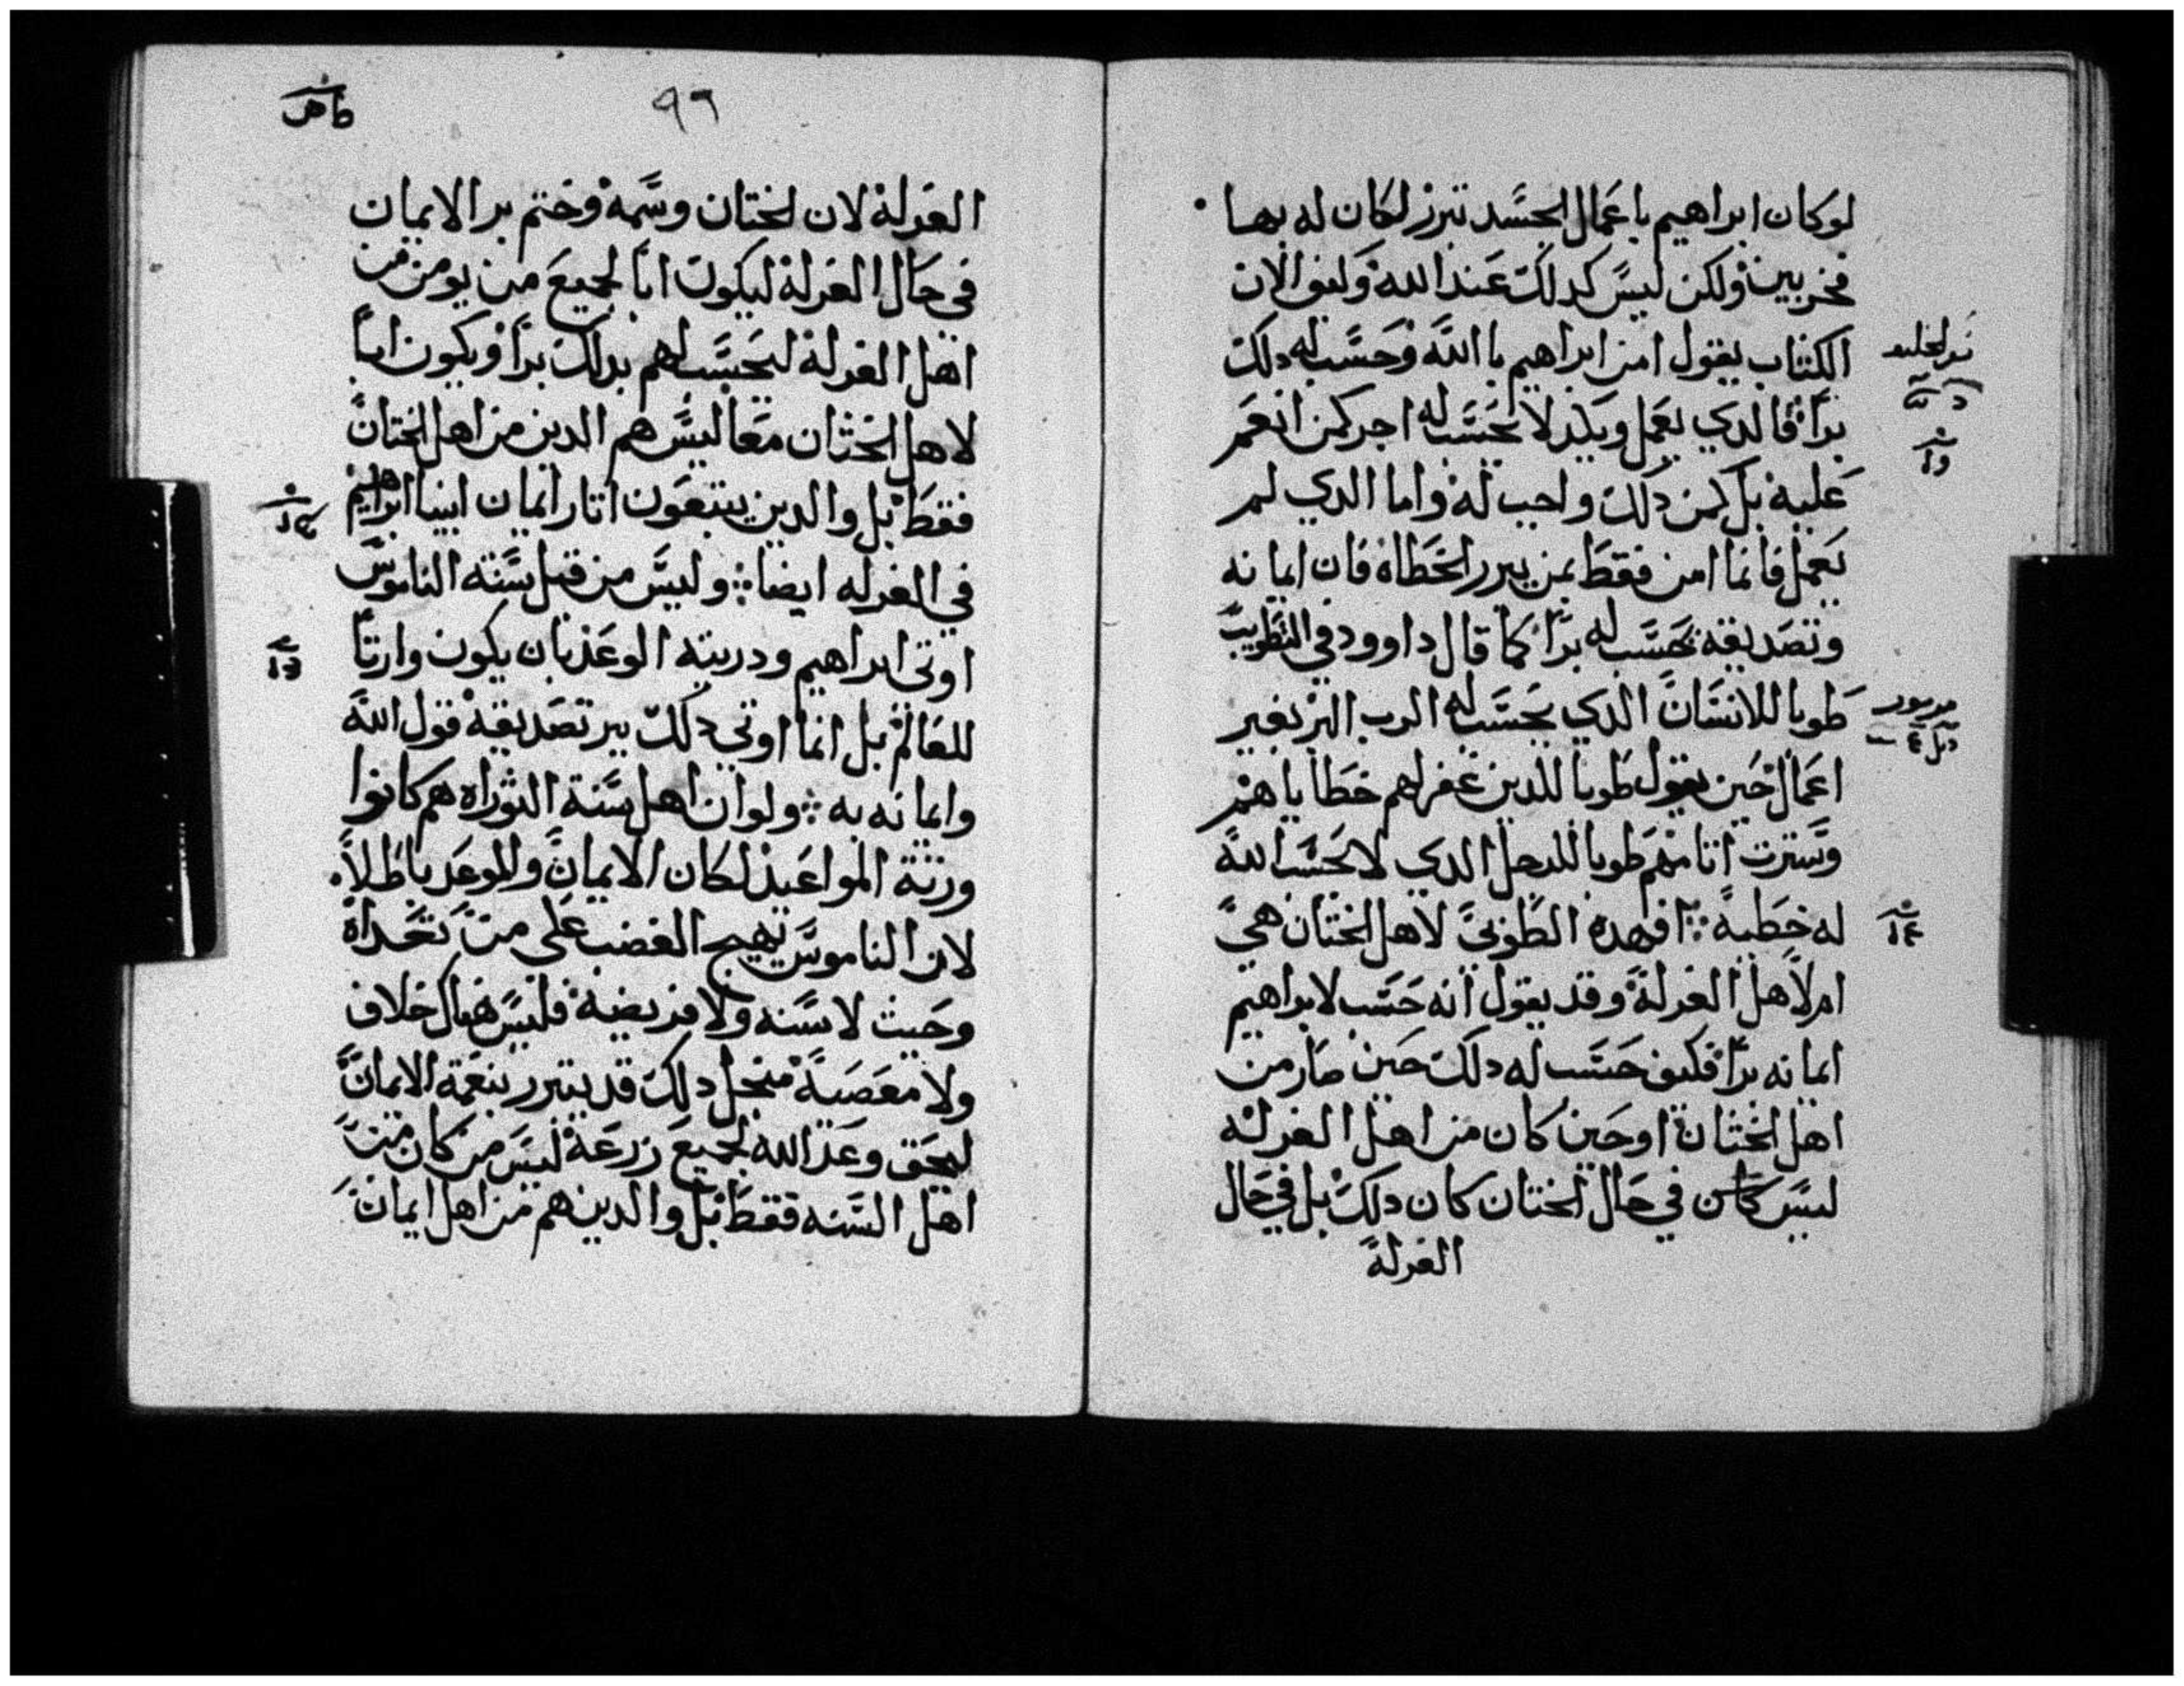 لوكان ابراهيم باعمال الجسد تبرر لكان له بها
فخر بين ولكن ليس كدلك عند الله وكيف الان
الكتاب يقول امن ابراهيم باالله وحسب له دلك
برا فالدي يعمل ويكد لا يحسب له اجر كمن انعم
عليه بل كمن دلك واجب له واما الدي لم
يعمل فانما امن فقط بمن يبرر الخطاه فان ايمانه
وتصديقه يحسب له برا كما قال داوود في التطويب
طوبا للانسان الدي يحسب له الرب البر بغير
اعمال حين يقول طوبا للدين غفر لهم خطاياهم
وسترت اتامهم طوبا للرجل الدي لا يحسب الله
له خطية افهده الطوبى لاهل الختان هي
ام لاهل الغرلة وقد يقول انه حسب لابراهيم
ايمانه برا فكيف حسب له دلك حين صار من
اهل الختان او حين كان من اهل الغرله
ليس كان في حال الختان كان دلك بل في حال
الغرلة
٩٦
الغرلة لان الختان وسمه وختم بر الايمان
في حال الغرلة ليكون ابا لجميع من يومن من
اهل الغرلة ليحسب لهم بدلك برا ويكون ابا
لاهل الختان معا ليس هم الدين من اهل الختان
فقط بل والدين يتبعون اتار ايمان ابينا ابراهيم
في الغرله ايضا وليس من قبل سنة الناموس
اوتي ابراهيم ودريته الوعد بان يكون وارتا
للعالم بل انما اوتي دلك ببر تصديقه قول الله
وايمانه به ولو ان اهل سنة التوراه هم كانوا
ورتة المواعيد لكان الايمان والموعد باطلا
لان الناموس يهيج الغضب على من تعداه
وحيث لا سنه ولا فريضة فليس هناك خلاف
ولا معصية من اجل دلك قد يتبرر بنعمة الايمان
ليحق وعد الله لجميع زرعه ليس من كان من
اهل السنه فقط بل والدين هم من اهل ايمان